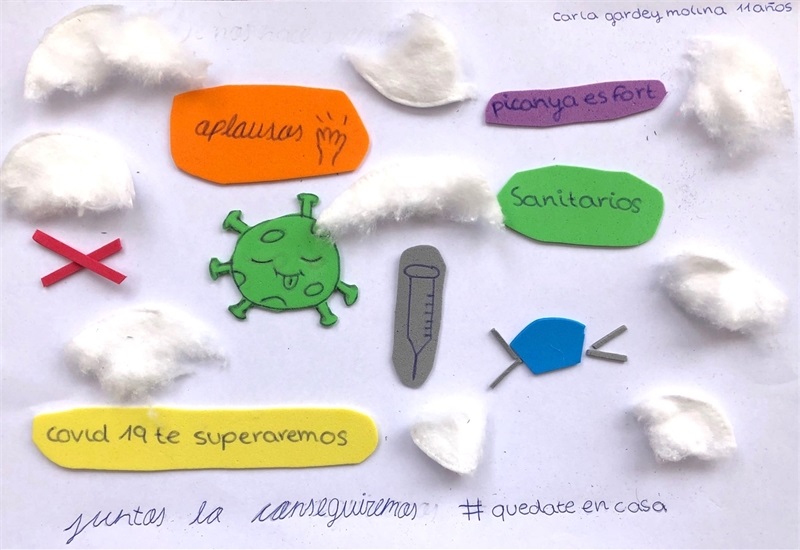 carla gardey molina 11 años
aplausos
picanya es fort
Sanitarios
covid 19 te superaremos
juntos lo conseguiremos #quedate en casa